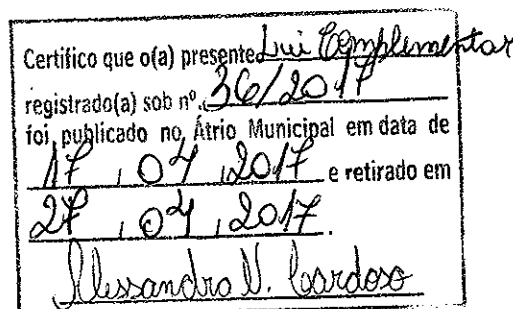 Certifico que o(a) presente Lei Complementar
registrado(a) sob nº. 36/2017
foi publicado no Átrio Municipal em data de
17 , 04 , 2017 e retirado em
27 , 04 , 2017.
Alessandra V. Cardoso